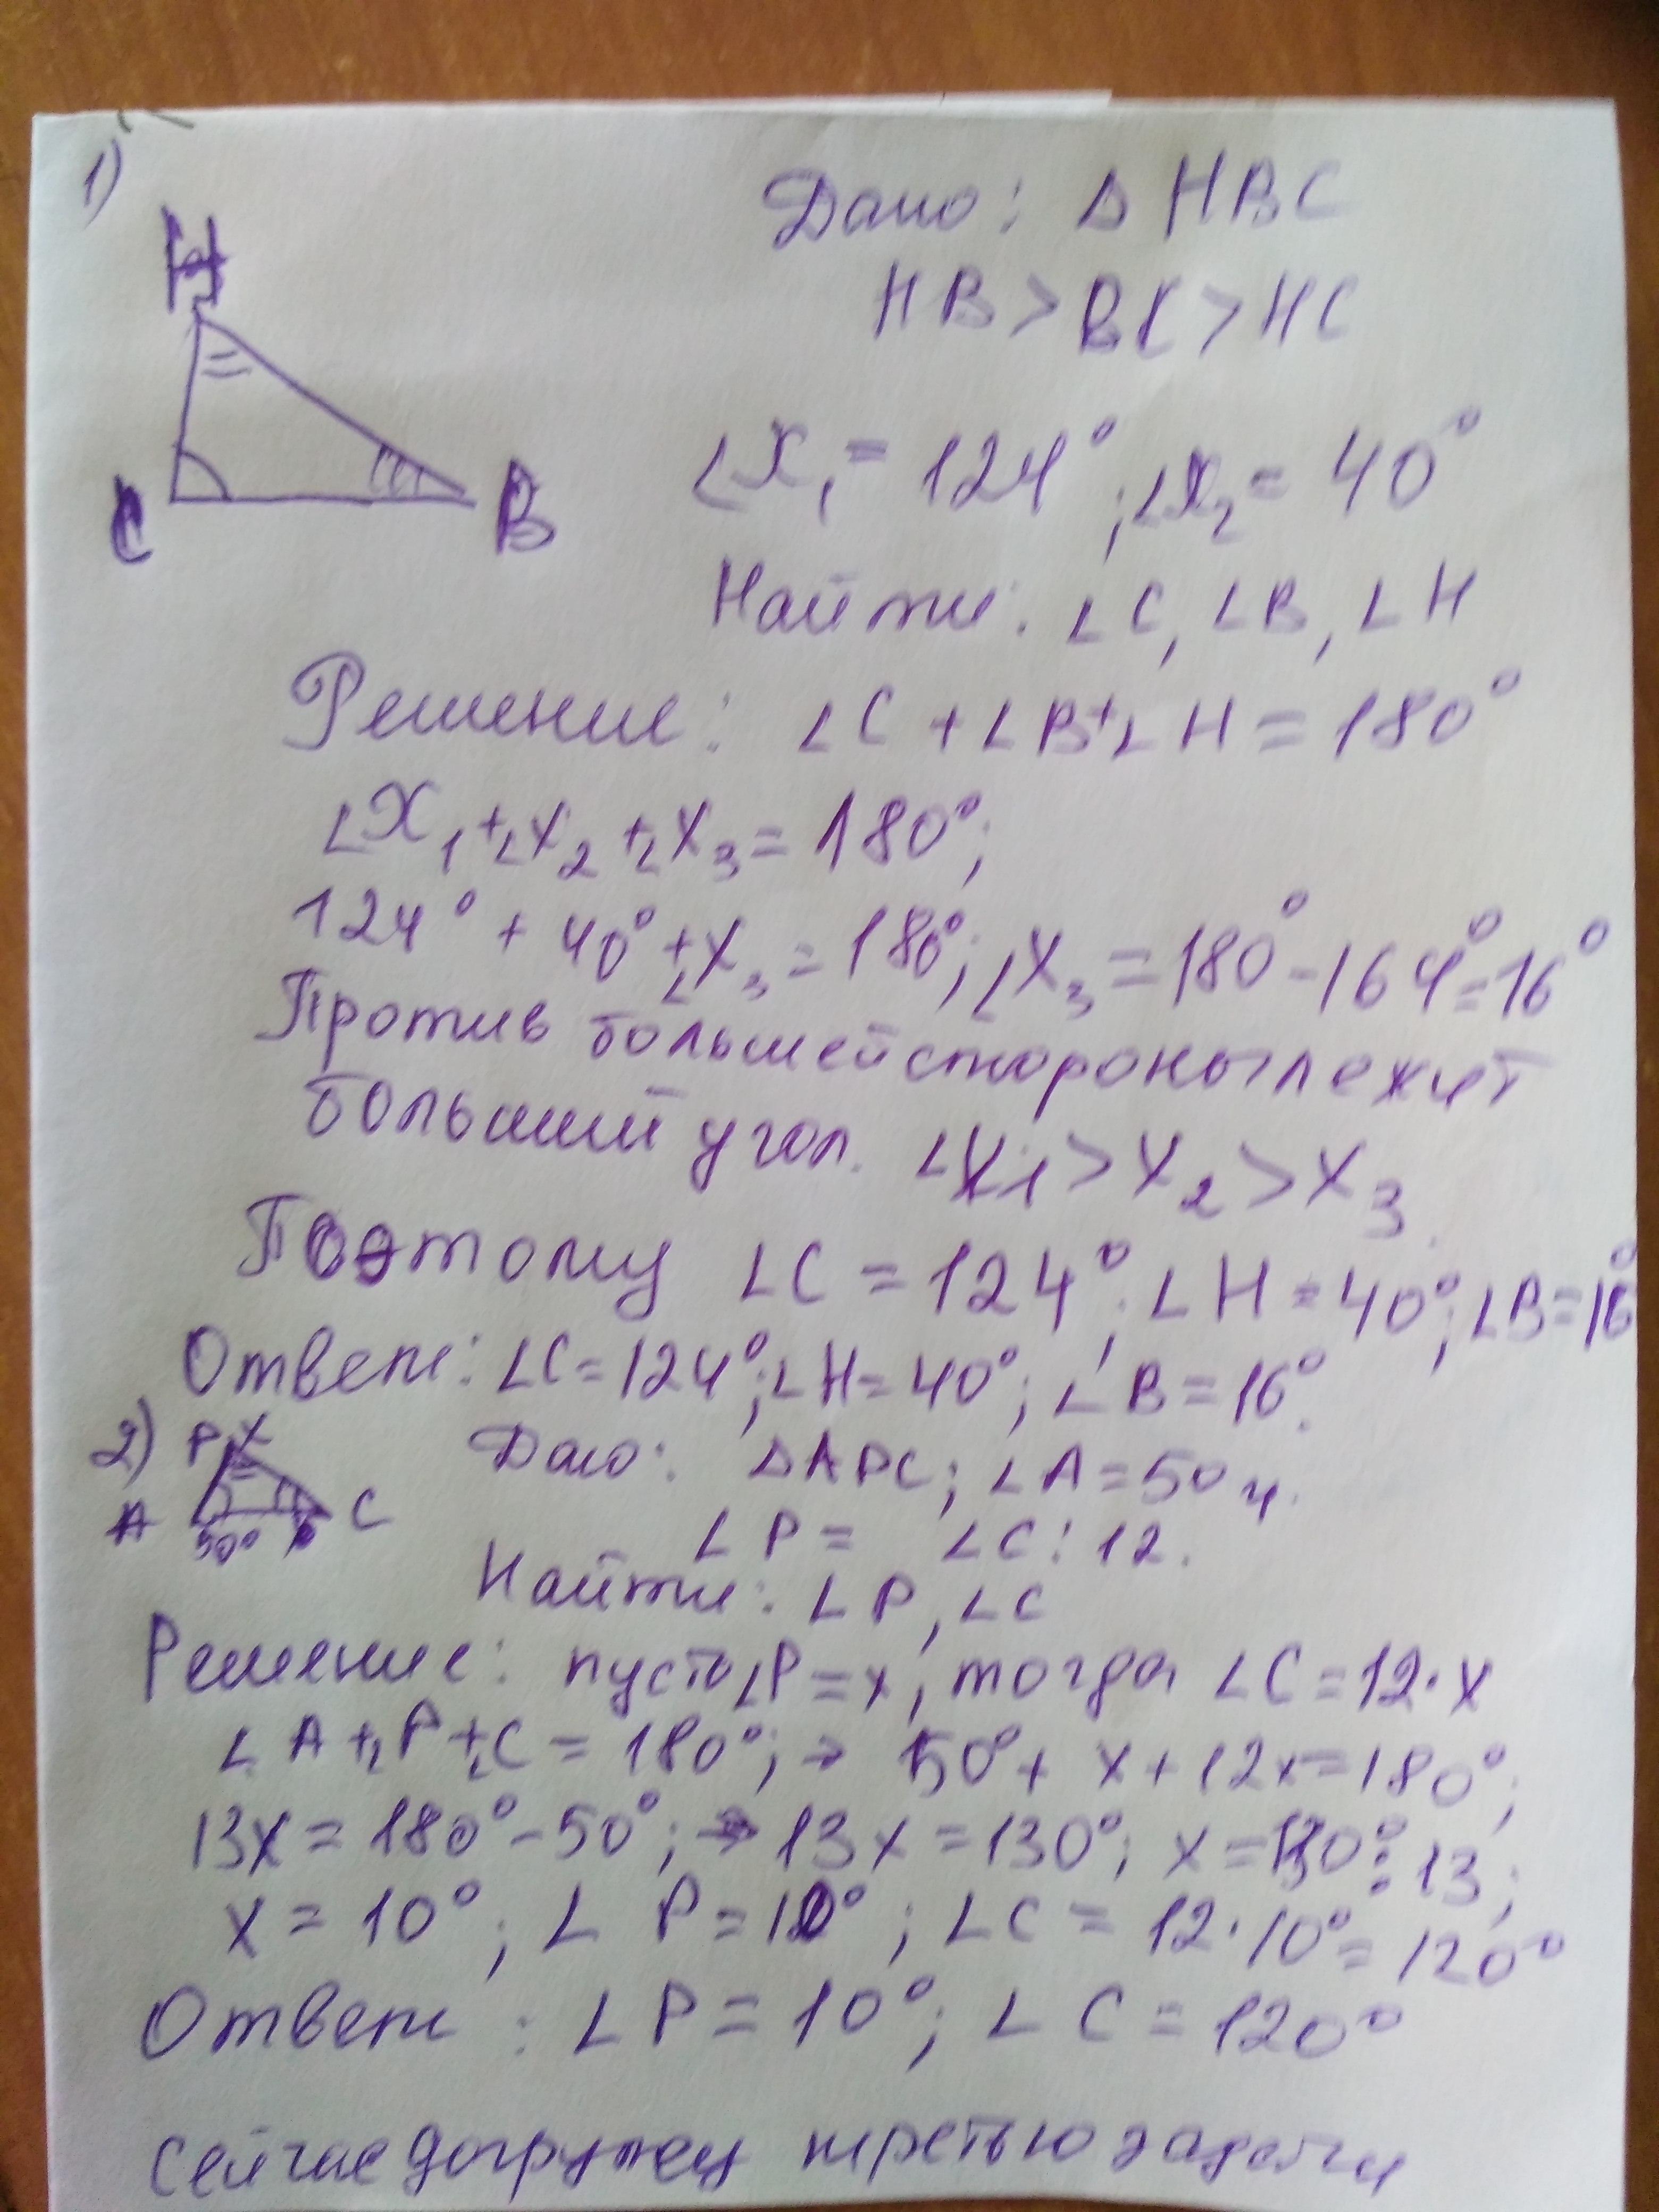 1)
H
C
B
Дано: Δ HBC
HB > BC > HC
∠X₁ = 124°; ∠X₂ = 40°
Найти: ∠C, ∠B, ∠H
Решение: ∠C + ∠B + ∠H = 180°
∠X₁ + ∠X₂ + ∠X₃ = 180°;
124° + 40° + ∠X₃ = 180°; ∠X₃ = 180° - 164° = 16°
Против большей стороны лежит
больший угол. ∠X₁ > X₂ > X₃.
Поэтому ∠C = 124°; ∠H = 40°; ∠B = 16°
Ответ: ∠C = 124°; ∠H = 40°; ∠B = 16°.
2)
P
A
C
50°
Дано: ΔAPC; ∠A = 50
∠P = ∠C : 12.
Найти: ∠P, ∠C
Решение: пусть ∠P = x, тогда ∠C = 12·x
∠A + ∠P + ∠C = 180°; → 50° + x + 12x = 180°;
13x = 180° - 50°; → 13x = 130°; x = 130° : 13;
x = 10°; ∠P = 10°; ∠C = 12·10° = 120°
Ответ: ∠P = 10°; ∠C = 120°
Сейчас догружу третью задачу